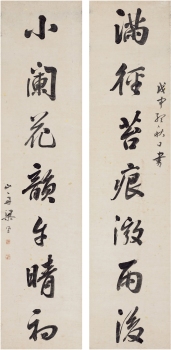 滿徑苔痕澂雨後
戊申孟秋日書
小闌花韻午晴初
山舟梁